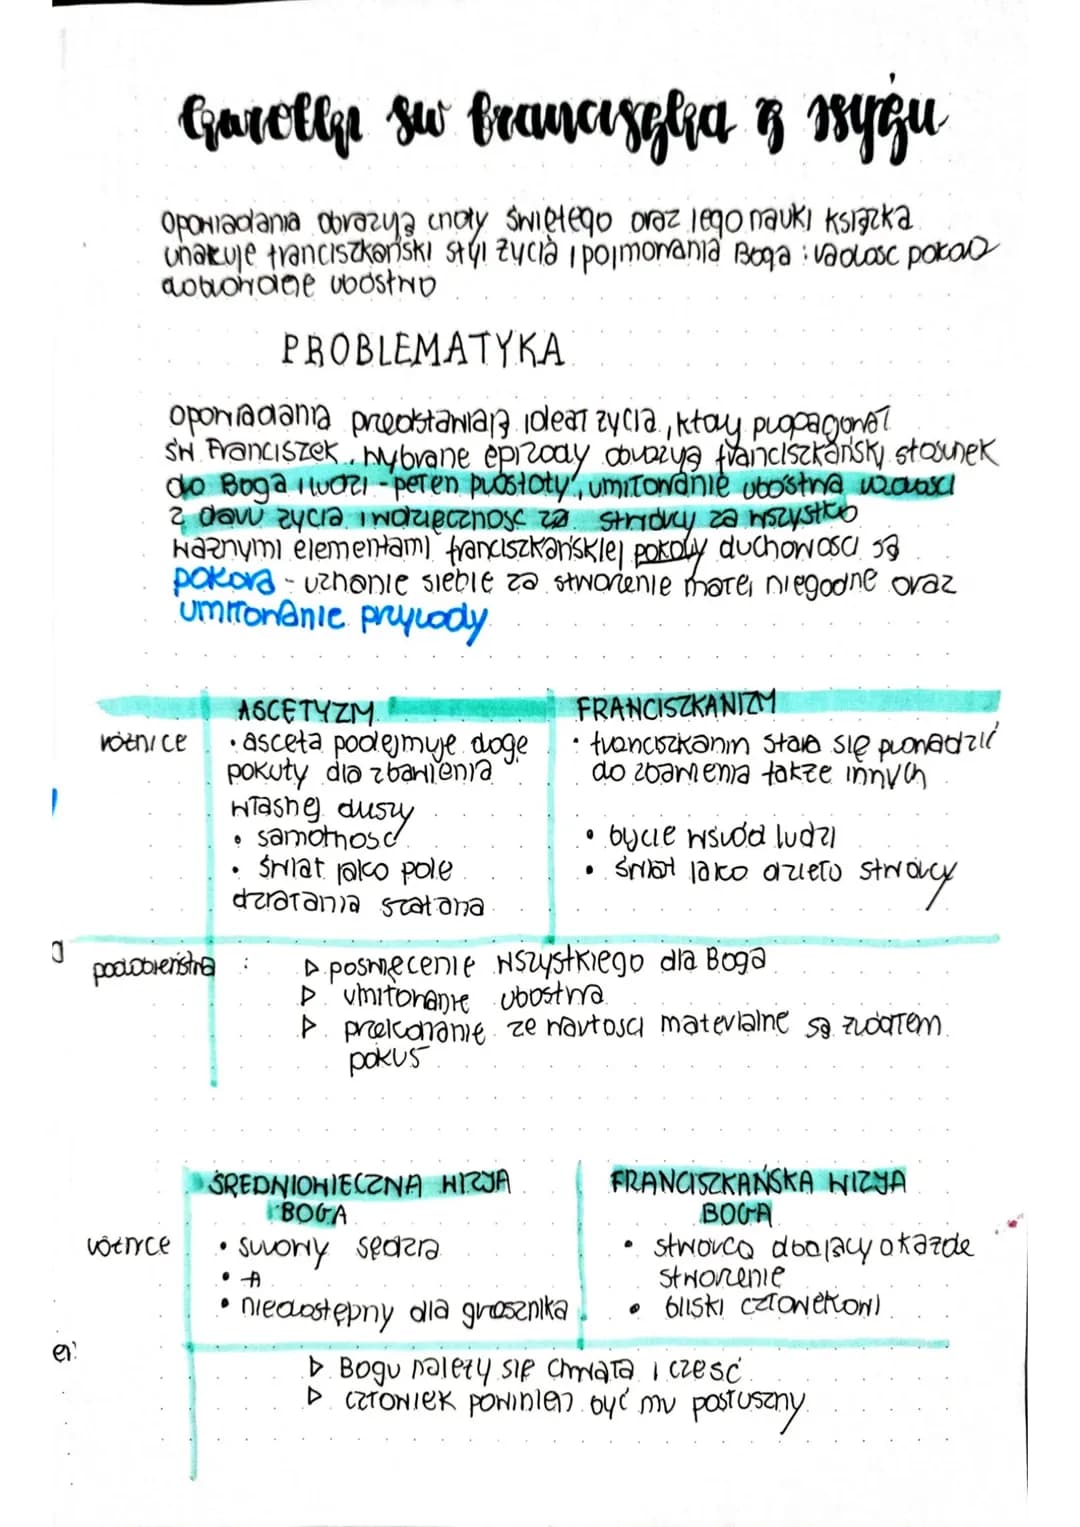 Kwiatki św Franciszka z Asyżu
opowiadania obrazują cnoty świętego oraz jego nauki książka
unakuje franciszkański styl życia i pojmowania Boga : radość pokora
dobrowolne ubóstwo
PROBLEMATYKA
opowiadania przedstawiają ideał życia, który propagował
św Franciszek. wybrane epizody obrazują franciszkański stosunek
do Boga i ludzi - pełen prostoty, umiłowanie ubóstwa radości
z daru życia i wdzięczność za stwórcy za wszystko
ważnymi elementami franciszkańskiej pokory duchowości są
pokora - uznanie siebie za stworzenie małe i niegodne oraz
umiłowanie przyrody
ASCETYZM FRANCISZKANIZM
różnice • asceta podejmuje drogę • franciszkanin stara się prowadzić
pokuty dla zbawienia do zbawienia także innych
własnej duszy
• samotność • bycie wśród ludzi
• świat jako pole • świat jako dzieło stwórcy
działania szatana
podobieństwa : ▷ poświęcenie wszystkiego dla Boga
▷ umiłowanie ubóstwa
▷ przekonanie że wartości materialne są źródłem
pokus
ŚREDNIOWIECZNA WIZJA FRANCISZKAŃSKA WIZJA
BOGA BOGA
różnice • surowy sędzia • stwórca dbający o każde
stworzenie
• niedostępny dla grzesznika • bliski człowiekowi
▷ Bogu należy się chwała i cześć
▷ człowiek powinien być mu posłuszny